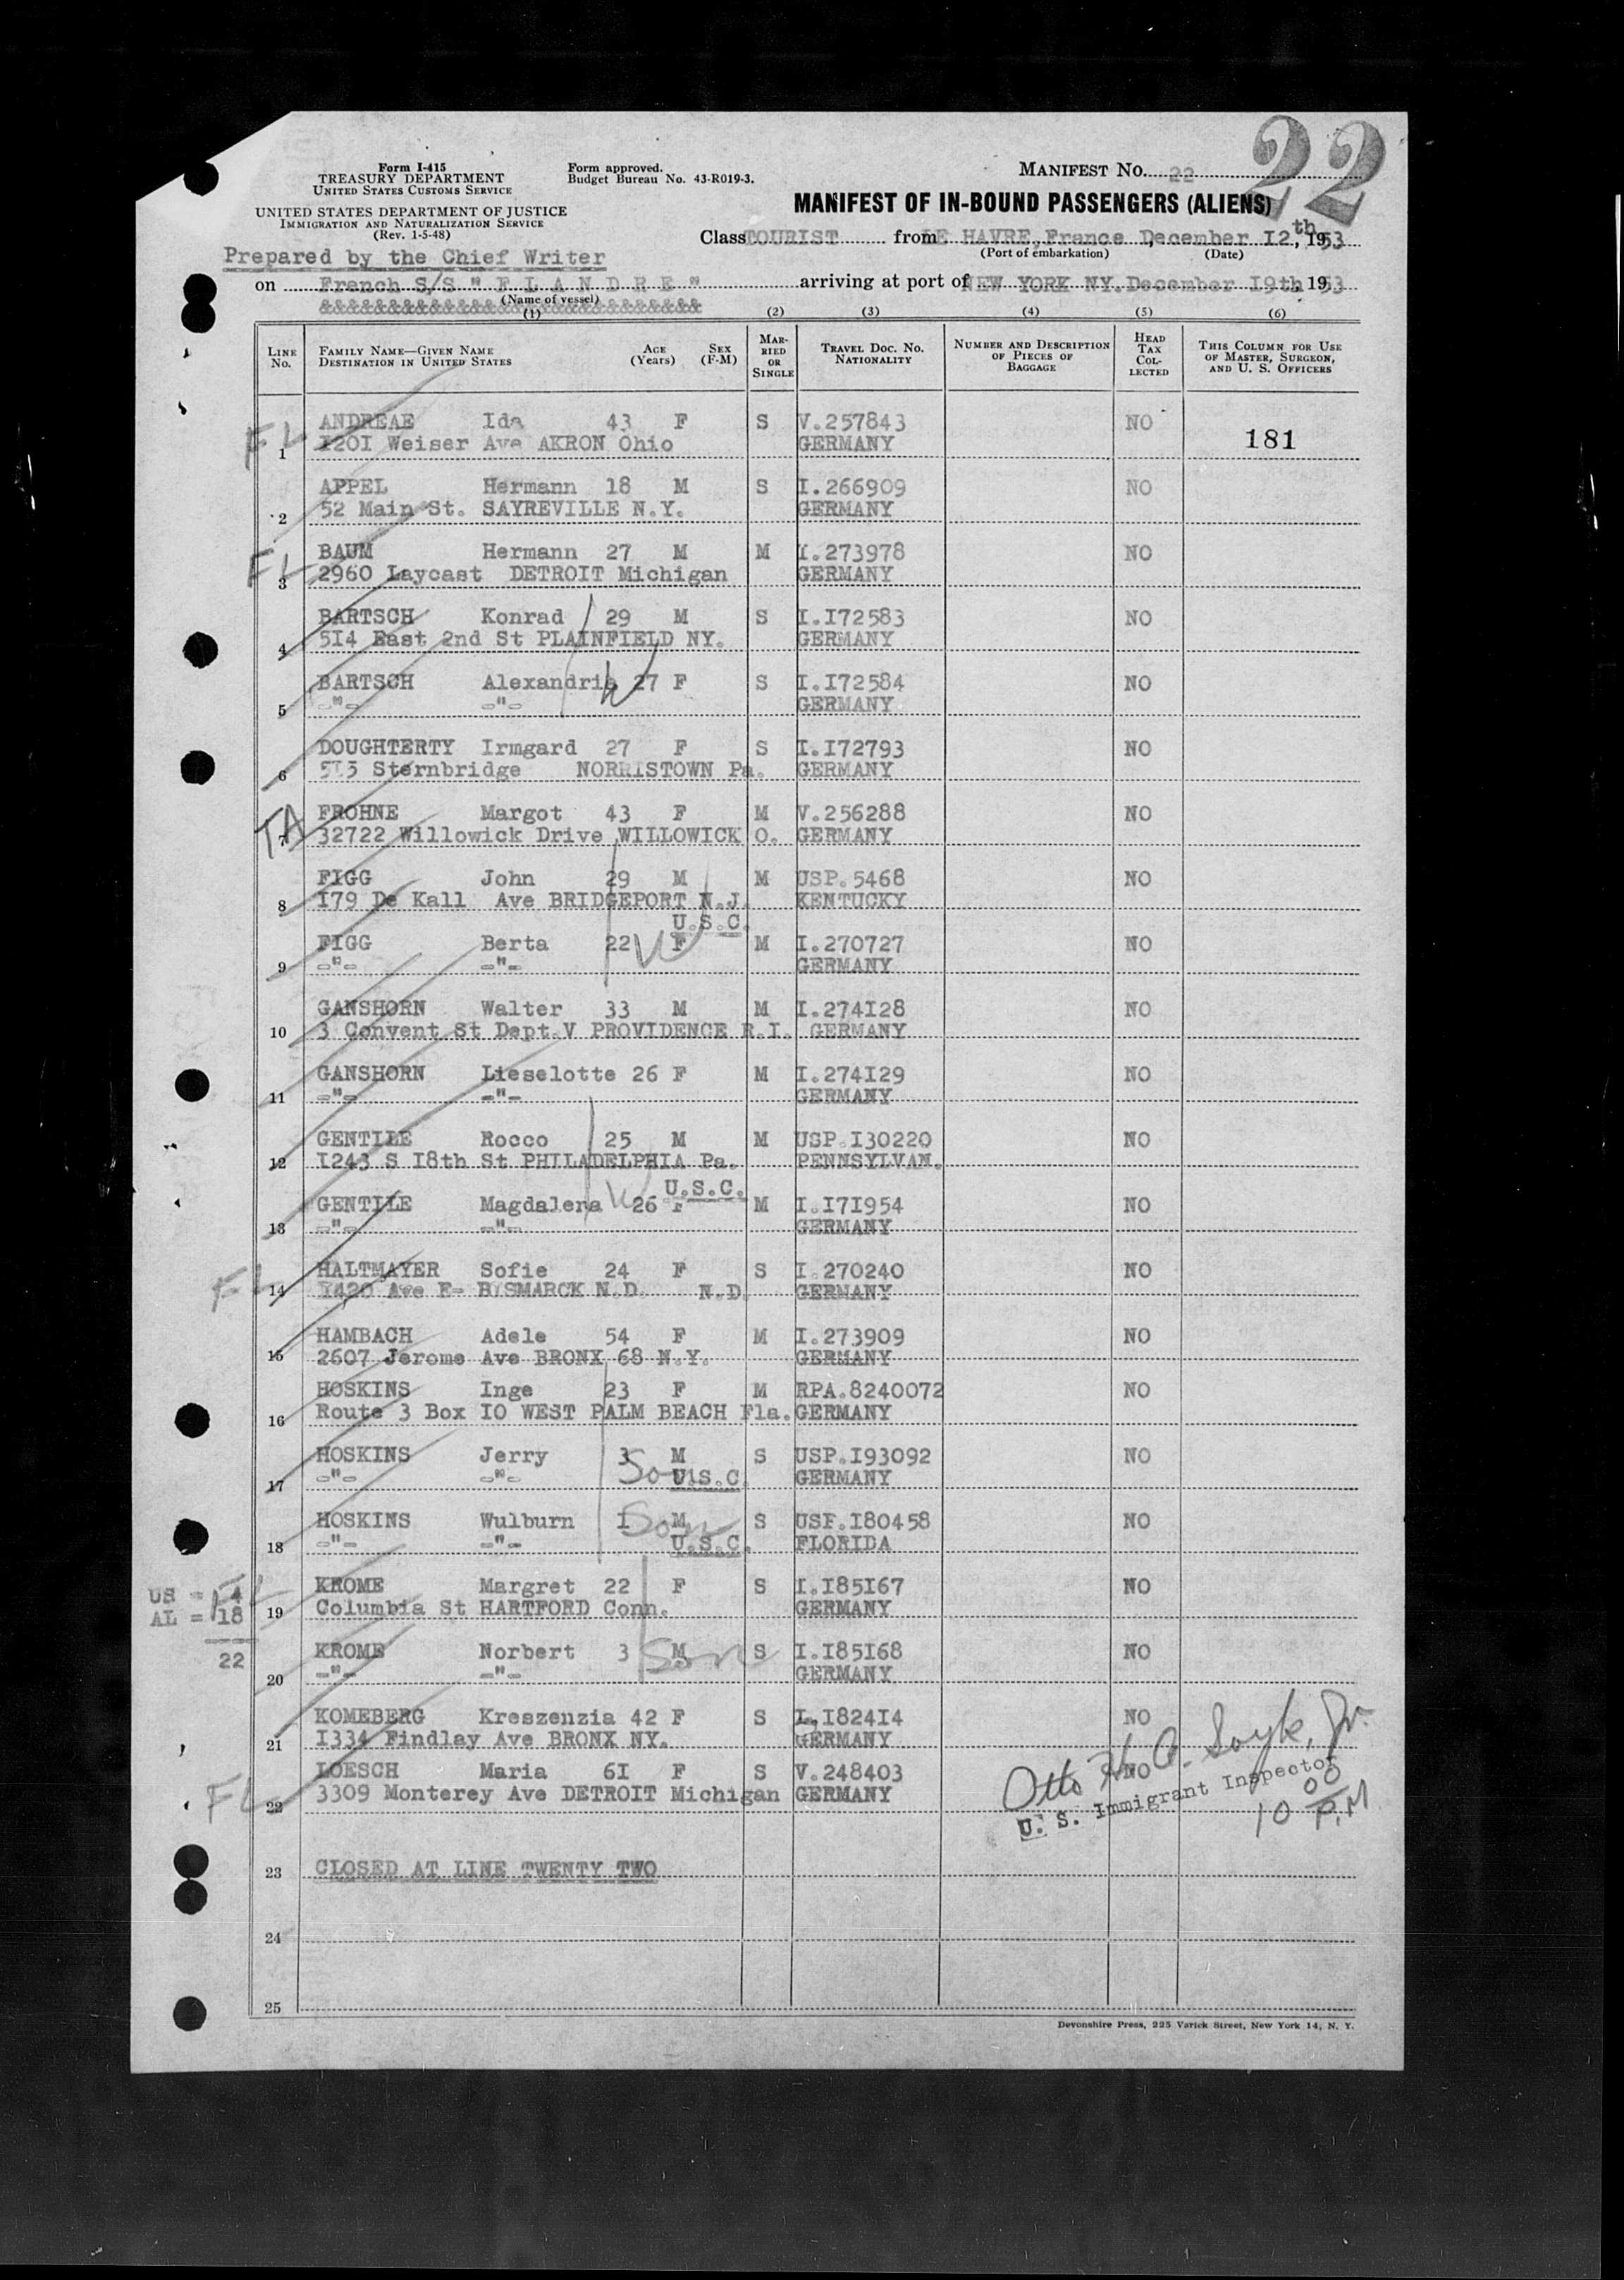 22
Form I-415
TREASURY DEPARTMENT
UNITED STATES CUSTOMS SERVICE
Form approved.
Budget Bureau No. 43-R019-3.
MANIFEST NO. 22
UNITED STATES DEPARTMENT OF JUSTICE
IMMIGRATION AND NATURALIZATION SERVICE
(Rev. 1-5-48)
MANIFEST OF IN-BOUND PASSENGERS (ALIENS)
Class TOURIST from LE HAVRE, France December I2th, 1953
(Port of embarkation) (Date)
Prepared by the Chief Writer
on French S/S " F L A N D R E " arriving at port of NEW YORK NY. December I9th 1953
(Name of vessel)
(1) (2) (3) (4) (5) (6)
LINE No. FAMILY NAME—GIVEN NAME DESTINATION IN UNITED STATES AGE (Years) SEX (F-M) MARRIED OR SINGLE TRAVEL DOC. NO. NATIONALITY NUMBER AND DESCRIPTION OF PIECES OF BAGGAGE HEAD TAX COLLECTED THIS COLUMN FOR USE OF MASTER, SURGEON, AND U. S. OFFICERS
FL ANDREAE Ida 43 F S V.257843 NO
1 I20I Weiser Ave AKRON Ohio GERMANY 181
APPEL Hermann 18 M S I.266909 NO
2 52 Main St. SAYREVILLE N.Y. GERMANY
FL BAUM Hermann 27 M M I.273978 NO
3 2960 Laycast DETROIT Michigan GERMANY
BARTSCH Konrad 29 M S I.I72583 NO
4 5I4 East 2nd St PLAINFIELD NY. GERMANY
BARTSCH Alexandria 27 F S I.I72584 NO
5 -"- -"- W GERMANY
DOUGHTERTY Irmgard 27 F S I.I72793 NO
6 5I3 Sternbridge NORRISTOWN Pa. GERMANY
TA FROHNE Margot 43 F M V.256288 NO
7 32722 Willowick Drive WILLOWICK O. GERMANY
FIGG John 29 M M USP.5468 NO
8 I79 De Kall Ave BRIDGEPORT N.J. KENTUCKY
U.S.C.
FIGG Berta 22 W F M I.270727 NO
9 -"- -"- GERMANY
GANSHORN Walter 33 M M I.274I28 NO
10 3 Convent St Dept.V PROVIDENCE R.I. GERMANY
GANSHORN Lieselotte 26 F M I.274I29 NO
11 -"- -"- GERMANY
GENTILE Rocco 25 M M USP.I30220 NO
12 I243 S I8th St PHILADELPHIA Pa. PENNSYLVAN.
U.S.C.
GENTILE Magdalena W 26 F M I.I7I954 NO
13 -"- -"- GERMANY
FL HALTMAYER Sofie 24 F S I.270240 NO
14 I420 Ave E- BISMARCK N.D. N.D. GERMANY
HAMBACH Adele 54 F M I.273909 NO
15 2607 Jerome Ave BRONX 68 N.Y. GERMANY
HOSKINS Inge 23 F M RPA.8240072 NO
16 Route 3 Box IO WEST PALM BEACH Fla. GERMANY
HOSKINS Jerry 3 M S USP.I93092 NO
17 -"- -"- Son U.S.C. GERMANY
HOSKINS Wulburn I M Son S USP.I80458 NO
18 -"- -"- U.S.C. FLORIDA
US = 4 FL KROME Margret 22 F S I.I85I67 NO
AL = 18 19 Columbia St HARTFORD Conn. GERMANY
22 KROME Norbert 3 M Son S I.I85I68 NO
20 -"- -"- GERMANY
KOMEBERG Kreszenzia 42 F S I.I824I4 NO
21 I334 Findlay Ave BRONX NY. GERMANY
FL LOESCH Maria 6I F S V.248403 NO
22 3309 Monterey Ave DETROIT Michigan GERMANY
U. S. Immigrant Inspector
10 00 P.M
23 CLOSED AT LINE TWENTY TWO
24
25
Devonshire Press, 225 Varick Street, New York 14, N. Y.